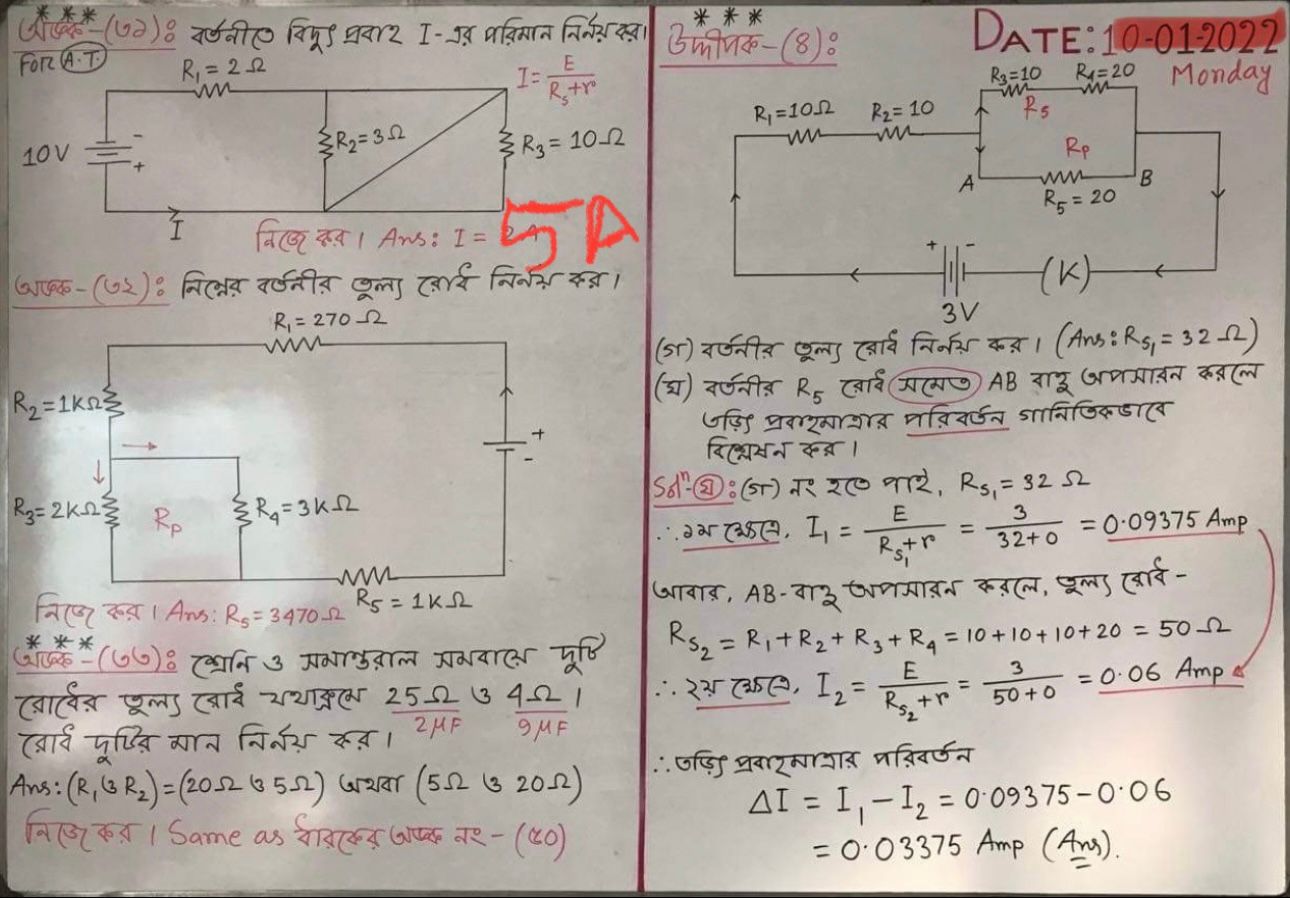 * * *
অঙ্ক-(৩১): বর্তনীতে বিদ্যুৎ প্রবাহ I-এর পরিমান নির্নয় কর।
For (A.T.)
R₁ = 2Ω
I = E / (Rₛ+r)
10V
-
+
R₂ = 3Ω
R₃ = 10Ω
I
নিজে কর। Ans: I = 5A
অঙ্ক-(৩২): নিম্নের বর্তনীর তুল্য রোধ নির্নয় কর।
R₁ = 270Ω
R₂ = 1KΩ
+
-
R₃ = 2KΩ
Rₚ
R₄ = 3KΩ
R₅ = 1KΩ
নিজে কর। Ans: Rₛ = 3470Ω
* * *
অঙ্ক-(৩৩): শ্রেনি ও সমান্তরাল সমবায়ে দুটি
রোধের তুল্য রোধ যথাক্রমে 25Ω ও 4Ω।
2μF 9μF
রোধ দুটির মান নির্নয় কর।
Ans: (R₁ ও R₂) = (20Ω ও 5Ω) অথবা (5Ω ও 20Ω)
নিজে কর। Same as ধারকের অঙ্ক নং - (৫০)
* * *
উদ্দীপক-(৪):
DATE: 10-01-2022
Monday
R₃=10 R₄=20
R₁=10Ω R₂=10
Rₛ
Rₚ
A B
R₅ = 20
+ -
(K)
3V
(গ) বর্তনীর তুল্য রোধ নির্নয় কর। (Ans: Rₛ₁ = 32Ω)
(ঘ) বর্তনীর R₅ রোধ সমেত AB বাহু অপসারন করলে
তড়িৎ প্রবাহমাত্রার পরিবর্তন গানিতিকভাবে
বিশ্লেষন কর।
Solⁿ-(ঘ): (গ) নং হতে পাই, Rₛ₁ = 32Ω
∴ ১ম ক্ষেত্রে, I₁ = E / (Rₛ₁+r) = 3 / (32+0) = 0.09375 Amp
আবার, AB-বাহু অপসারন করলে, তুল্য রোধ -
Rₛ₂ = R₁ + R₂ + R₃ + R₄ = 10+10+10+20 = 50Ω
∴ ২য় ক্ষেত্রে, I₂ = E / (Rₛ₂+r) = 3 / (50+0) = 0.06 Amp
∴ তড়িৎ প্রবাহমাত্রার পরিবর্তন
ΔI = I₁ - I₂ = 0.09375 - 0.06
= 0.03375 Amp (Ans).